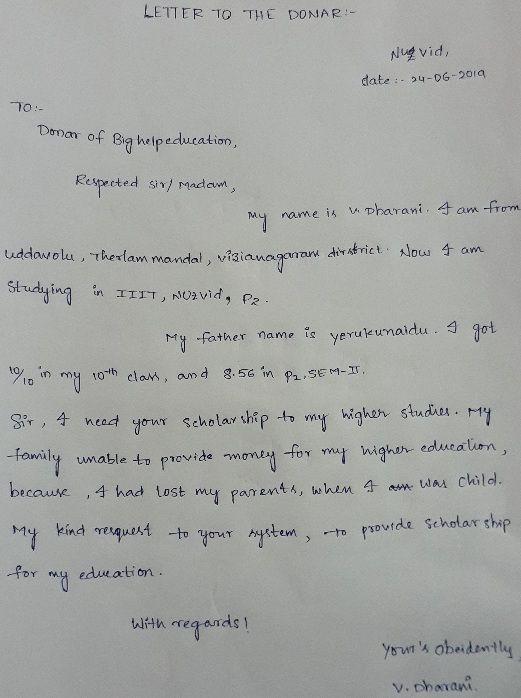 LETTER TO THE DONAR:-
Nuzvid,
date:- 24-06-2019
TO:-
Donar of Big help education,
Respected sir/ Madam,
My name is V. Dharani. I am from
uddavolu, Therlam mandal, vizianagaram dirstrict. Now I am
studying in IIIT, NUZvid, P2.
My father name is yerukunaidu. I got
10/10 in my 10th class, and 8.56 in P2, SEM-II.
Sir, I need your scholarship to my higher studies. My
family unable to provide money for my higher education,
because, I had lost my parents, when I was child.
My kind resquest to your system, to provide scholarship
for my education.
With regards!
Your's Obeidently
V. Dharani.